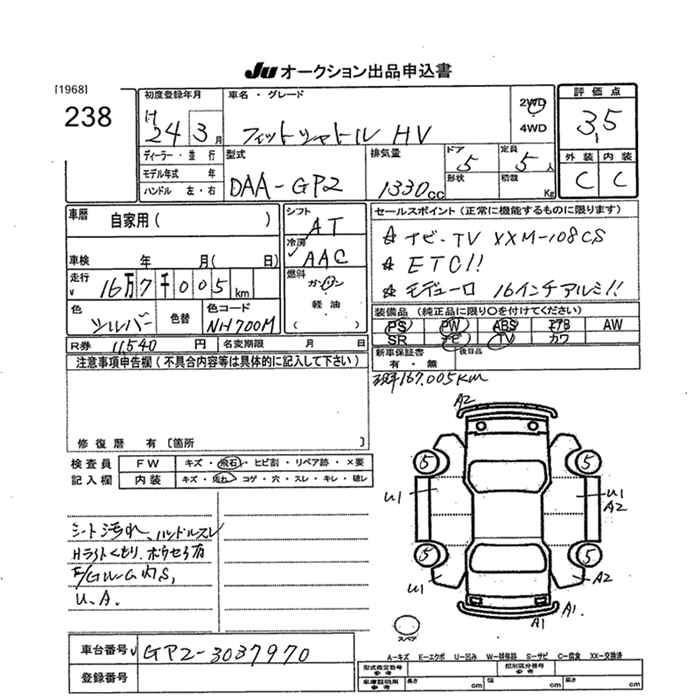 JU オークション出品申込書
[1968]
238
初度登録年月
H24 3月
車名・グレード
フィットシャトル HV
2WD
4WD
評価点
3.5
外装 内装
C C
ディーラー・並行
モデル年式 年
ハンドル 左・右
型式
DAA-GP2
排気量
1330cc
ドア 5
形状
定員 5人
積載 Kg
車暦 自家用( )
車検 年 月( 日)
走行 16万7千005km
色 シルバー 色替 色コード NH700M
シフト AT
冷房 AAC
燃料 ガソリン
軽油
( )
セールスポイント(正常に機能するものに限ります)
☆ ナビ・TV XXM-108CS
☆ ETC!!
☆ モデューロ 16インチアルミ!!
装備品(純正品に限り○を付けてください)
PS PW ABS エアB AW
SR ナビ TV カワ
R券 11,540円 名変期限 月 日
新車保証書 有・無 後日品
注意事項申告欄(不具合内容等は具体的に記入して下さい)
167,005km
修復歴 有[箇所 ]
検査員 FW キズ・飛石・ヒビ割・リペア跡・×要
記入欄 内装 キズ・汚れ・コゲ・穴・スレ・キレ・破レ
A2
5 5
U1 U1
A2
5 5
U1 A2
A1 A1
スペア
シート汚れ、ハンドルスレ
Hライトくもり、ホウセキ有
F/Gルーム内S,
U.A.
車台番号 GP2-3037970
登録番号
A-キズ E-エクボ U-凹み W-補修跡 S-サビ C-腐食 XX-交換済
型式指定番号 参考 類別区分番号 参考
車庫証明用 参考 長さ cm 幅 cm 高さ cm